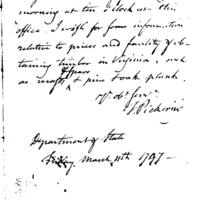 morning at ten o'clock at this
office. I wish for some information
relative to prices and facility of ob-
taining timber in Virginia, such
as masts & spars & pine & oak plank.
Yr. obt. serv.
T. Pickering
Department of State
Friday March 11th 1797 —